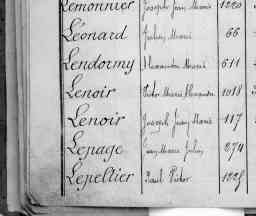 Lemonnier Joseph Jean Marie 1220
Léonard Julien Marie 66
Lendormy Alexandre Marie 611
Lenoir Victor Marie Alexandre 1018
Lenoir Joseph Jean Marie 117
Lepage Jean Marie Julien 274
Lepeltier Paul Victor 1225